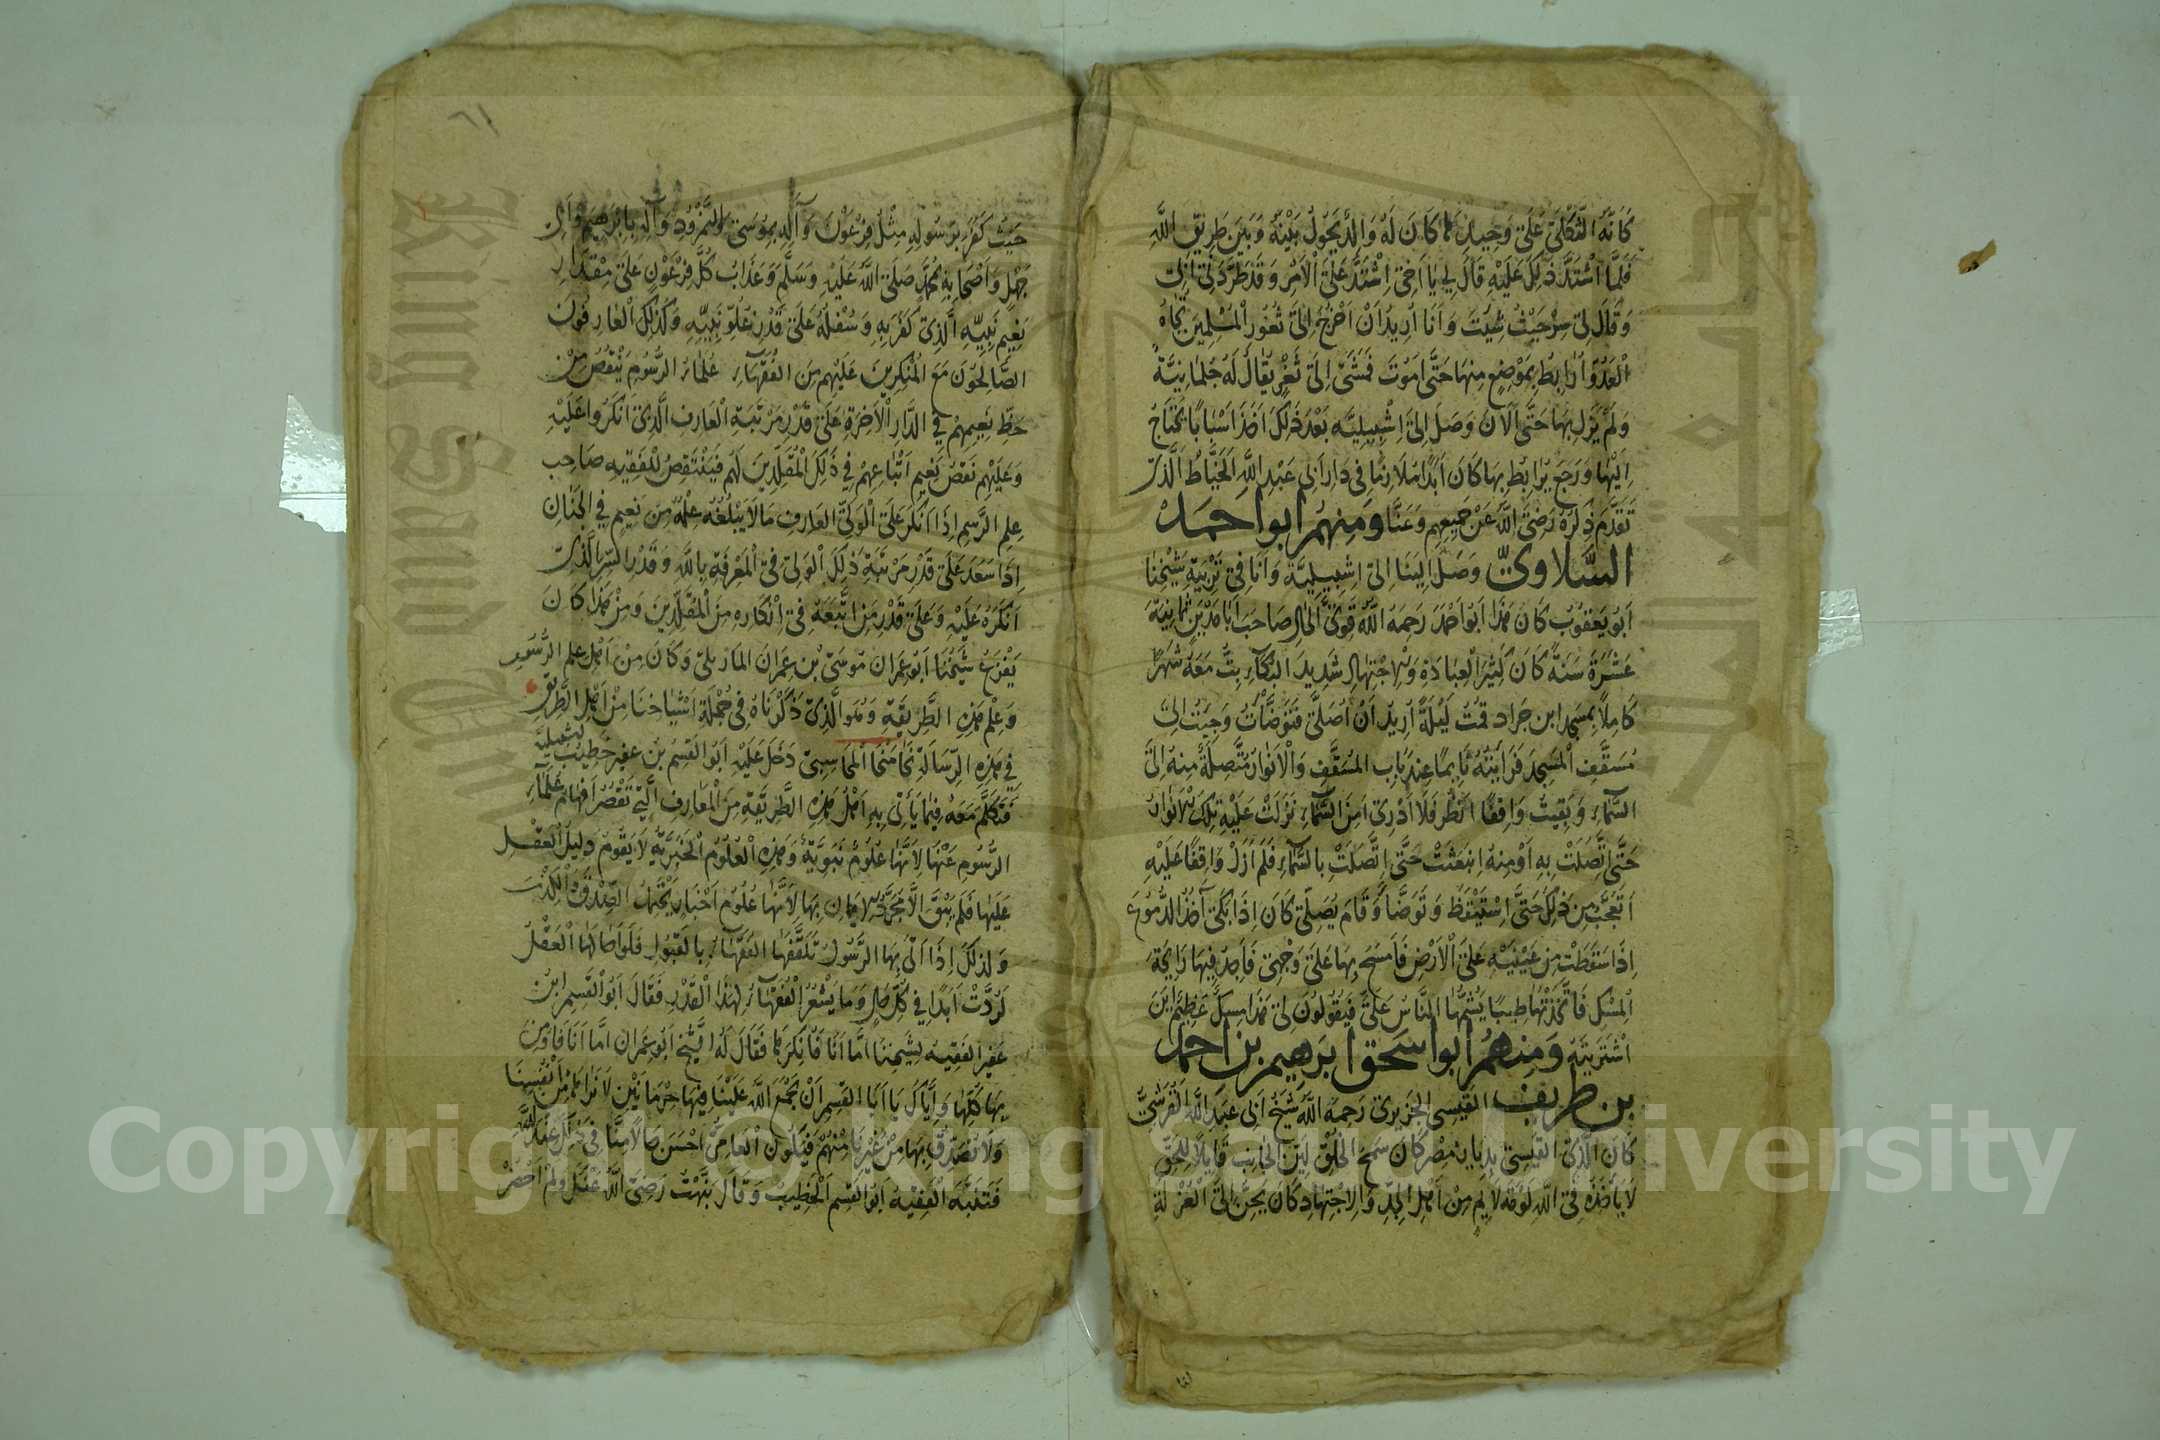 كَانَّهُ الثَّكْلَى عَلَى وَحِيدِهَا كَانَ لَهُ وَالِدٌ يَحُولُ بَيْنَهُ وَبَيْنَ طَرِيقِ اللَّهِ
فَلَمَّا اشْتَدَّ ذَلِكَ عَلَيْهِ قَالَ لِي يَا اَخِي اِشْتَدَّ عَلَىَّ الْاَمْرُ وَقَدْ طَرَدَنِي اَبِي
وَقَالَ لِي سِرْ حَيْثُ شِيْتَ وَاَنَا اُرِيدُ اَنْ اَخْرُجَ اِلَى ثُغُورِ الْمُسْلِمِينَ تُجَاهَ
الْعَدُوِّ اُرَابِطُ بِمَوْضِعٍ مِنْهَا حَتَّى اَمُوتَ فَمَشَى اِلَى ثَغْرٍ يُقَالُ لَهُ جُلمَانِيَّةُ
وَلَمْ يَزَلْ بِهَا حَتَّى اَلْآنَ وَصَلَ اِلَى اِشْبِيلِيَّه بَعْدَ ذَلِكَ اَخَذَ اَسْبَابًا يَحْتَاجُ
اِلَيْهَا وَرَجَعَ يُرَابِطُ بِهَا كَانَ اَبَدًا مُلَازِمًا فِي دَارِ اَبِي عَبْدِ اللَّهِ الْخَيَّاطُ الَّذِي
تَقَدَّمَ ذِكْرُهُ رَضِيَ اللَّهُ عَنْ جَمِيعِهِمْ وَعَنَّا وَمِنهُم ابو احمد
السَّلاوىّ وَصَلَ اِلَيْنَا اِلَى اِشْبِيلِيَّةَ وَاَنَا فِي تَرْبِيَةِ شَيْخُنَا
اَبُو يَعْقُوبْ كَانَ هَذَا اَبُو اَحْمَدَ رَحِمَهُ اللَّهُ قَوِىَّ الْحَالِ صَاحِبَ اَبَا مَدْيَنَ ثَمَانِيَةَ
عَشْرَةَ سَنَةً كَانَ كَثِيرَ الْعِبَادَةِ وَالْاِجْتِهَادِ شَدِيدَ الْبُكَآءِ بِتُّ مَعَهُ شَهْرًا
كَامِلًا بِمَسْجِدِ ابن جَرَاد قُمْتُ لَيْلَةً اُرِيدُ اَنْ اُصَلِّىَ فَتَوَضَّأْتُ وَجِيْتُ اِلَى
مُسَقَّفِ الْمَسْجِدِ فَرَاَيْتُهُ نَايِمًا عِنْدَ بَابِ الْمُسَقَّفِ وَالْاَنْوَارُ مُتَّصِلَةٌ مِنهُ اِلَى
السَّمَاءِ وَبَقِيتُ وَاقِفًا اَنْظُرُ فَلَا اَدْرِى اَمِنَ السَّمَاءِ نَزَلَتْ عَلَيْهِ تِلْكَ الْاَنْوَارُ
حَتَّى اتَّصَلَتْ بِهِ اَوْ مِنهُ اِنْبَعَثَتْ حَتَّى اتَّصَلَتْ بِالسَّمَاءِ فَلَمْ اَزَلْ وَاقِفًا عَلَيْهِ
اَتَعَجَّبُ مِن ذَلِكَ حَتَّى اِسْتَيْقَظَ وَتَوَضَّأَ وَقَامَ يُصَلِّى كَانَ اِذَا بَكَى آخُذُ الدُّمُوعَ
اِذَا سَقَطَتْ مِنْ عَيْنَيْهِ عَلَى الْاَرْضِ فَاَمْسَحُ بِهَا عَلَى وَجْهِى فَاَجِدُ فِيهَا رَايِحَةَ
الْمِسْكِ فَاتَّخَذْتُهَا طِيبًا يَشُمُّهَا النَّاسُ عَلَىَّ فَيَقُولُونَ لِى هَذَا مِسْكٌ عَظِيمٌ اَيْنَ
اشْتَرَيْتَهُ وَمِنهُم ابو اسحق ابرهيم بن احمد
بن طريف القَيْسِى الْجَزِيرِى رَحِمَهُ اللَّهُ شَيْخُ اَبِى عَبْدِ اللَّهِ الْقُرَشِىِّ
كَانَ الَّذِى الْقَيْسِى بِدِيَارِ مِصْرَ كَانَ سَمْحَ الْخُلُقِ لَيِّنَ الْجَانِبِ قَايِلًا لِلْحَقِّ
لَا يَأخُذُهُ فِى اللَّهِ لَوْمَةُ لَايِمٍ مِنْ اَهْلِ الْجِدِّ وَالِاجْتِهَادِ كَانَ يَحِنُّ اِلَى الْعُزْلَةِ
٦١
حَيْثُ كَفَرَ بِرَسُولِهِ مِثْلُ فِرْعَوْنَ وَآلِهِ بِمُوسَى وَالنَّمْرُودِ وَآلِهِ بِاِبْرَهِيمَ وَاَبِى
جَهْلٍ وَاَصْحَابِهِ بِمُحَمَّدٍ صَلَّى اللَّهُ عَلَيْهِ وَسَلَّمَ وَعَذَابُ كُلِّ فِرْعَوْنٍ عَلَى مِقْدَارِ
نَعِيمِ نَبِيِّهِ الَّذِى كَفَرَ بِهِ وَسُفْلُهُ عَلَى قَدْرِ عُلُوِّ نَبِيِّهِ وَكَذَلِكَ الْعَارِفُونَ
الصَّالِحُونَ مَعَ الْمُنْكِرِينَ عَلَيْهِم مِنَ الْفُقَهَاءِ عُلَمَاءُ الرُّسُومِ يَنْقُصُ مِنْ
حَظِّ نَعِيمِهِمْ فِي الدَّارِ الْاَخِرَةِ عَلَى قَدْرِ مَرْتَبَةِ الْعَارِفِ الَّذِى اَنْكَرُوا عَلَيْهِ
وَعَلَيْهِم نَقْصُ نَعِيمِ اَتْبَاعِهِمْ فِي ذَلِكَ الْمُقَلِّدِينَ لَهُم فَيَنْتَقِصُ لِلْفَقِيهِ صَاحِب
عِلمِ الرَّسمِ اِذَا اَنكَرَ عَلَى الْوَلِىِّ الْعَارِفِ مَا لَا يَبْلُغُهُ عِلْمُهُ مِن نَعِيمٍ فِي الْجِنَانِ
اِذَا سَعَدَ عَلَى قَدْرِ مَرْتَبَةِ ذَلِكَ الْوَلِىِّ فِى الْمَعْرِفَةِ بِاللَّهِ وَقَدْرِ السِّرِّ الَّذِى
اَنْكَرَهُ عَلَيْهِ وَعَلَى قَدْرِ مَنِ اتَّبَعَهُ فِى اِنْكَارِهِ مِنَ الْمُقَلِّدِينَ وَمِنْ هَذَا كَانَ
يَفْزَعُ شَيْخُنَا اَبُو عِمْرَان مُوسَى بْن عِمْرَان المَارْتلىّ وَكَانَ مِنْ اَهْلِ عِلمِ الرُّسُومِ
وَعِلْمِ هَذِهِ الطَّرِيقَةِ وَهُوَ الَّذِى ذَكَرْنَاهُ فِى جُمْلَةِ اَشْيَاخِنَا مِنْ اَهْلِ الطَّرِيقِ
فِي هَذِهِ الرِّسَالَةِ نَحَا مَنْحَا الْمُحَاسِبِىِّ دَخَلَ عَلَيْهِ اَبُو الْقَسِمْ بْنُ عفير خَطِيبُ اشبيلية
فَتَكَلَّمَ مَعَهُ فِيمَا يَأتِى بِهِ اَهْلُ هَذِهِ الطَّرِيقَةِ مِنَ الْمَعَارِفِ الَّتِى تَقْصُرُ اَفْهَامُ عُلَمَاءِ
الرُّسُومِ عَنْهَا لِاَنَّهَا عُلُومٌ نَبَوِيَّةٌ وَهَذِهِ الْعُلُومُ الْخَبَرِيَّةُ لَا يَقُومُ دَلِيلُ الْعَقْلِ
عَلَيْهَا فَلَمْ يَبْقَ اِلَّا مُجَرَّدُ الْاِيمَانِ بِهَا لِاَنَّهَا عُلُومُ اَخْبَارٍ يَحْتَمِلُ الصِّدْقَ وَالْكَذِبَ
وَلِذَلِكَ اِذَا اَتَى بِهَا الرَّسُولُ تَلَقَّفَهَا الْفُقَهَاءُ بِالْقَبُولِ فَلَوْ اَحَالَهَا الْعَقْلُ
لَرُدَّتْ اَبَدًا فِي كُلِّ حَالٍ وَمَا يَشْعُرُ الْفُقَهَاءُ لِهَذَا الْقَدْرِ فَقَالَ اَبُو الْقَسِمِ ابنُ
عفير الفَقِيهُ لِشَيْخِنَا اَمَّا اَنَا فَاُنْكِرُهَا فَقَالَ لَهُ الشَّيْخُ اَبُو عِمْرَان اَمَّا اَنَا فَاُومِنُ
بِهَا كُلِّهَا وَاِيَّاكَ يَا اَبَا الْقَسِمِ اَنْ يَجْمَعَ اللَّهُ عَلَيْنَا فِيهَا حِرْمَانَيْنِ لَا نَرَاهَا مِنْ اَنْفُسِنَا
وَلَا نُصَدِّقُ بِهَا مِنْ غَيْرِنَا فَيَكُونُ الْعَامِىُّ اَحْسَنَ حَالًا مِنَّا فِى ذَلِكَ عِنْدَ اللَّهِ
فَتَنَبَّهَ الْفَقِيهُ اَبُو القَسِمِ الْخَطِيبُ وَقَالَ نَبَّهْتَ رَضِىَ اللَّهُ عَنْكَ وَلَمْ اَحْضُرْ
Copyright © King Saud University